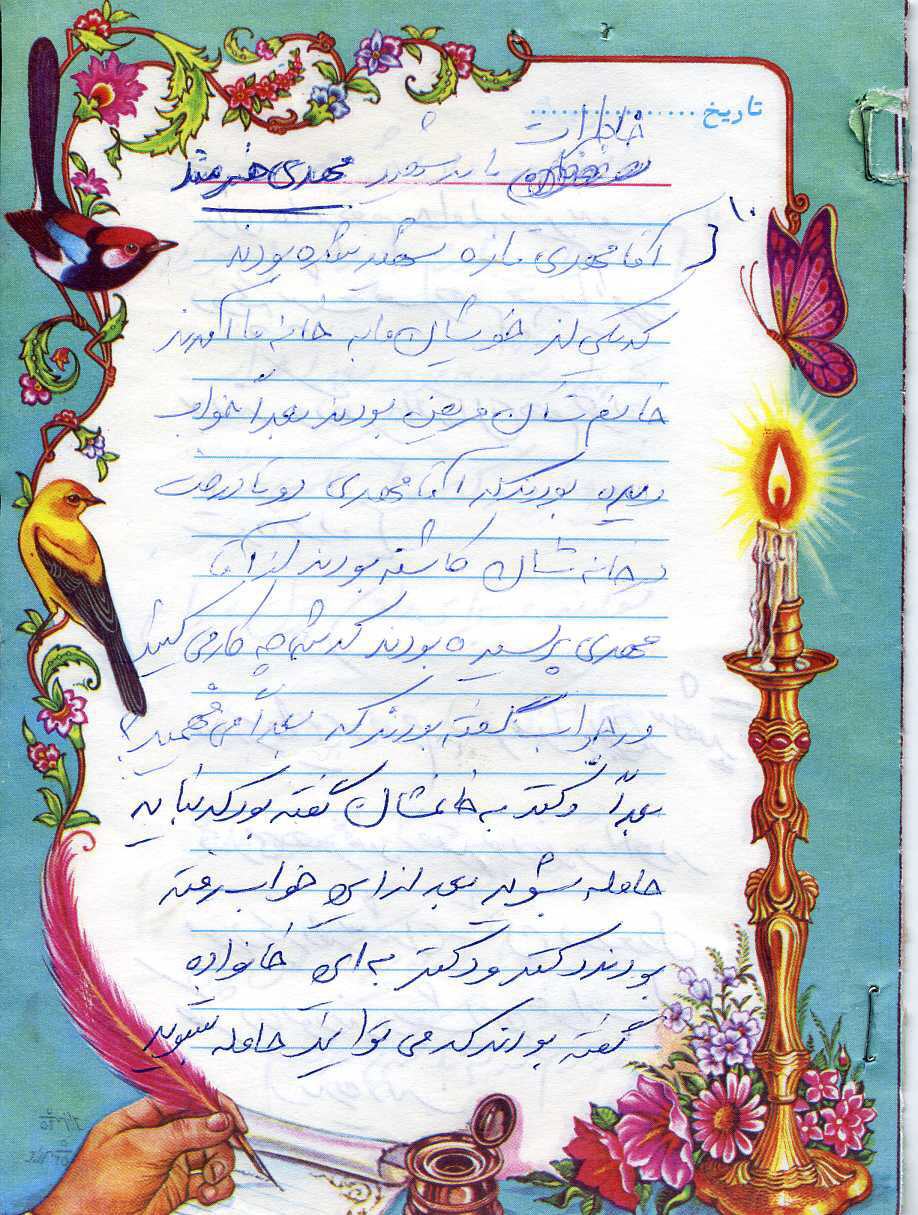 تاریخ
خاطرات
مادر شهید مهدی هنرمند
۱۰
آقا مهدی تازه شهید شده بودند
که یکی از خویشان ما به خانه ما آمدند
خانم شان مریض بودند بعداً خواب
دیده بودند که آقا مهدی دو تا درخت
در خانه شان کاشته بودند از آقا
مهدی پرسیده بودند که شما چه کار می کنید
در جواب گفته بودند که بعداً می فهمید؟
بعداً دکتر به خانمشان گفته بود که نباید
حامله بشوید بعد از این خواب رفته
بودند دکتر و دکتر به ای خانواده
گفته بودند که می توانید حامله شوید